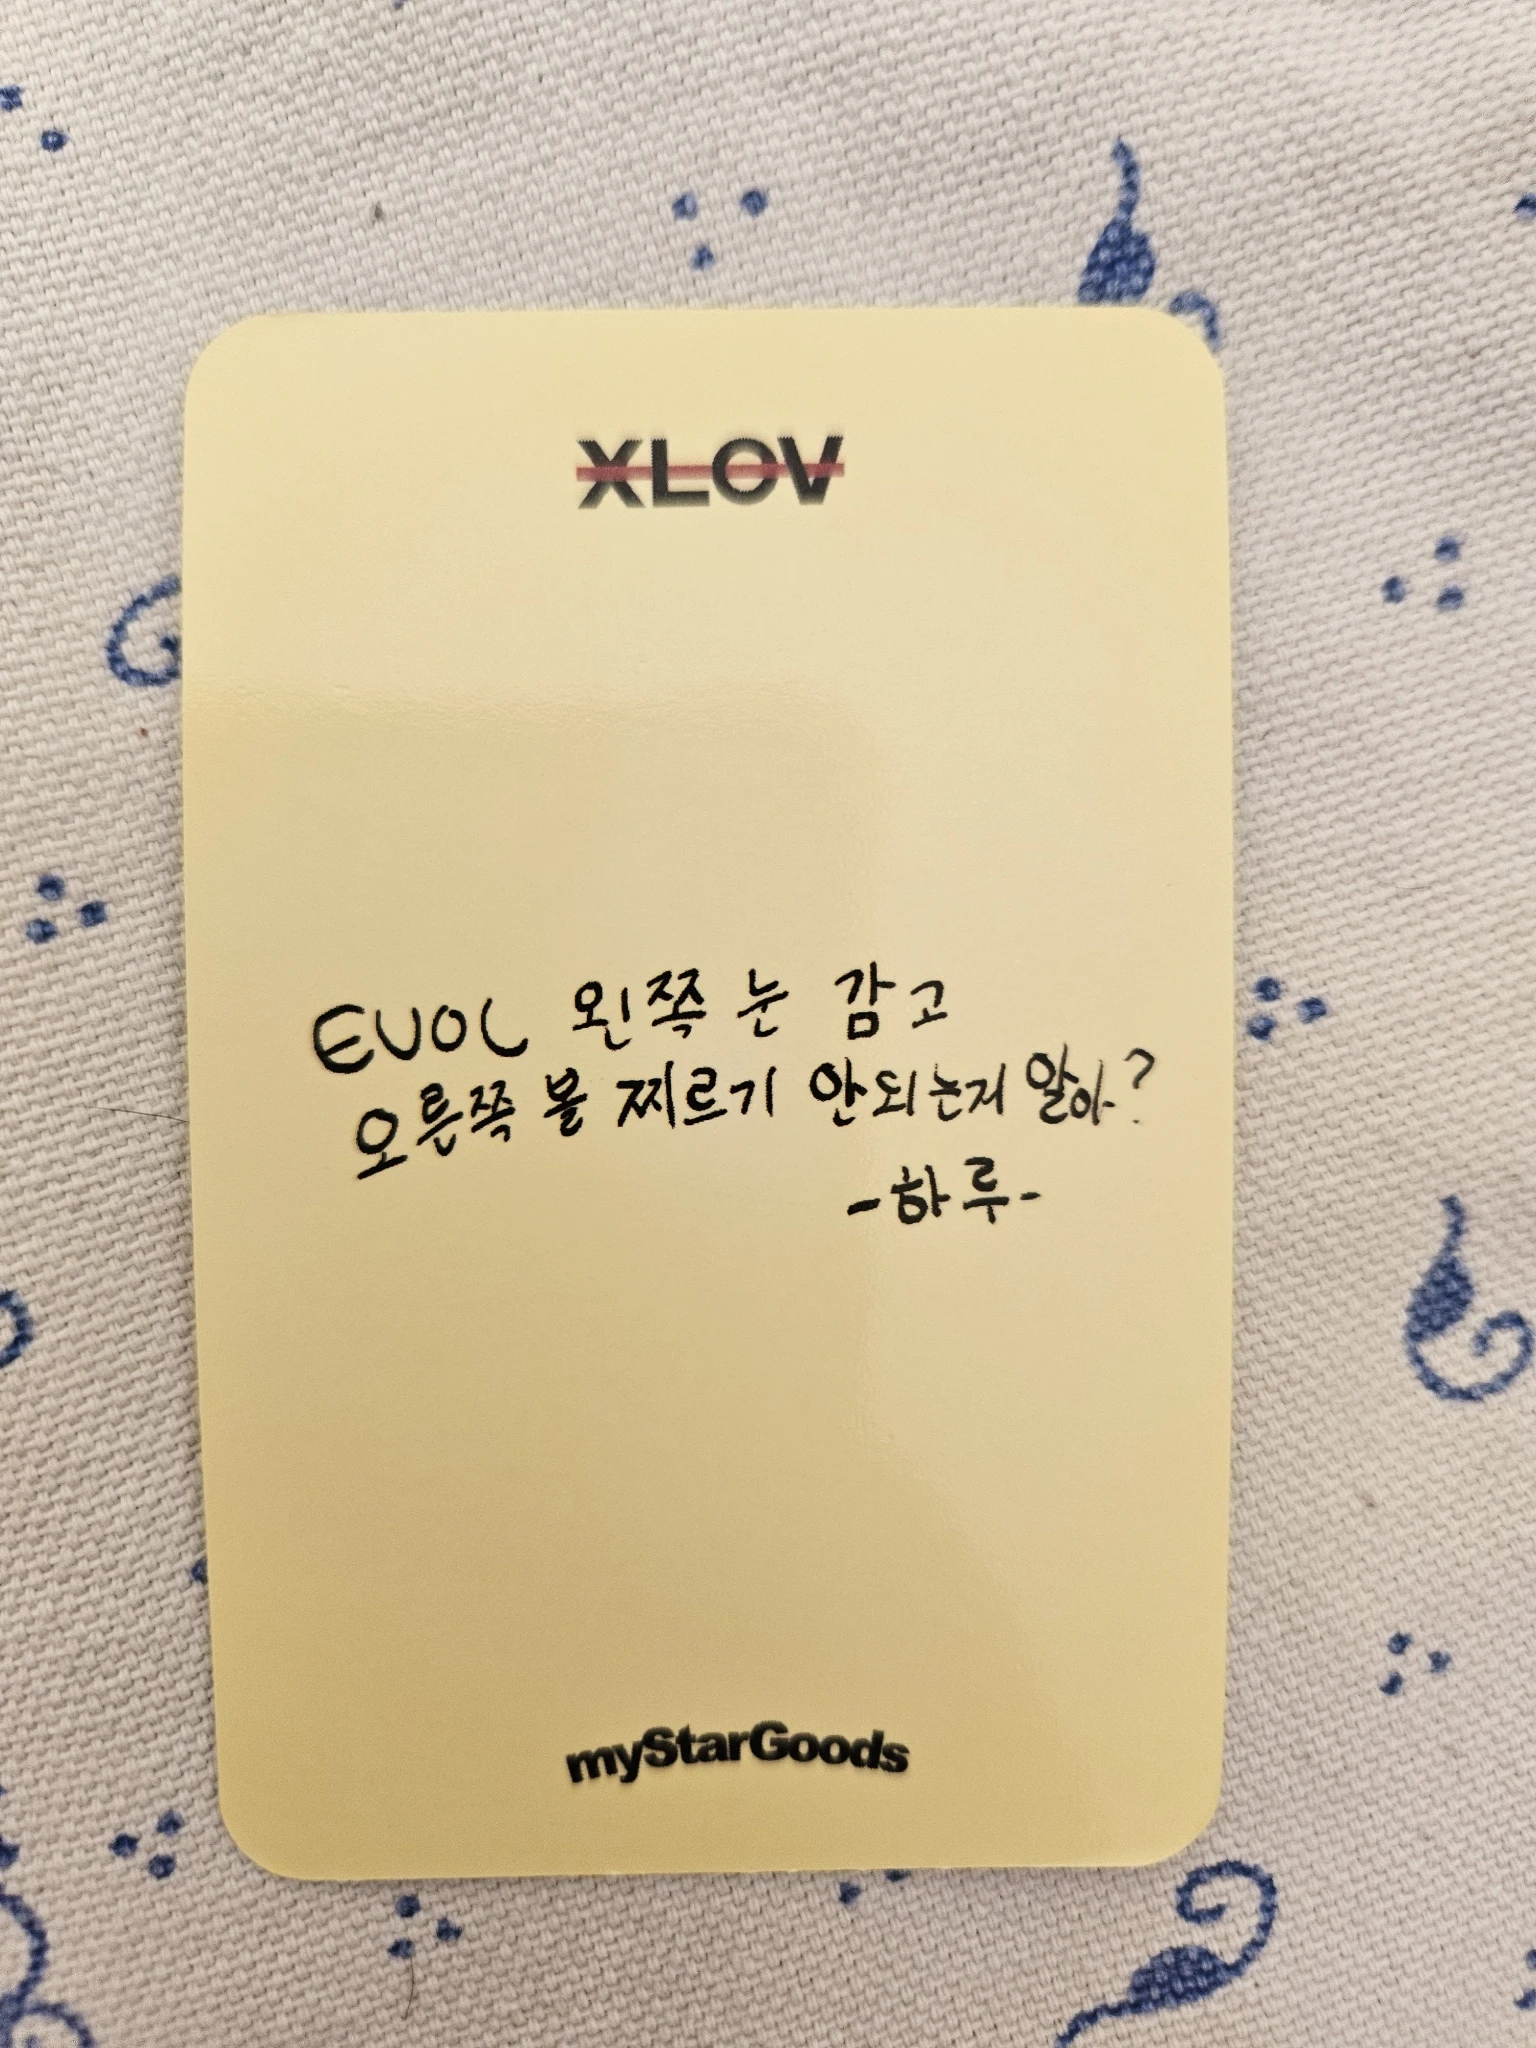 XLOV
EVOL 왼쪽 눈 감고
오른쪽 볼 찌르기 안되는지 알아?
-하루-
myStarGoods